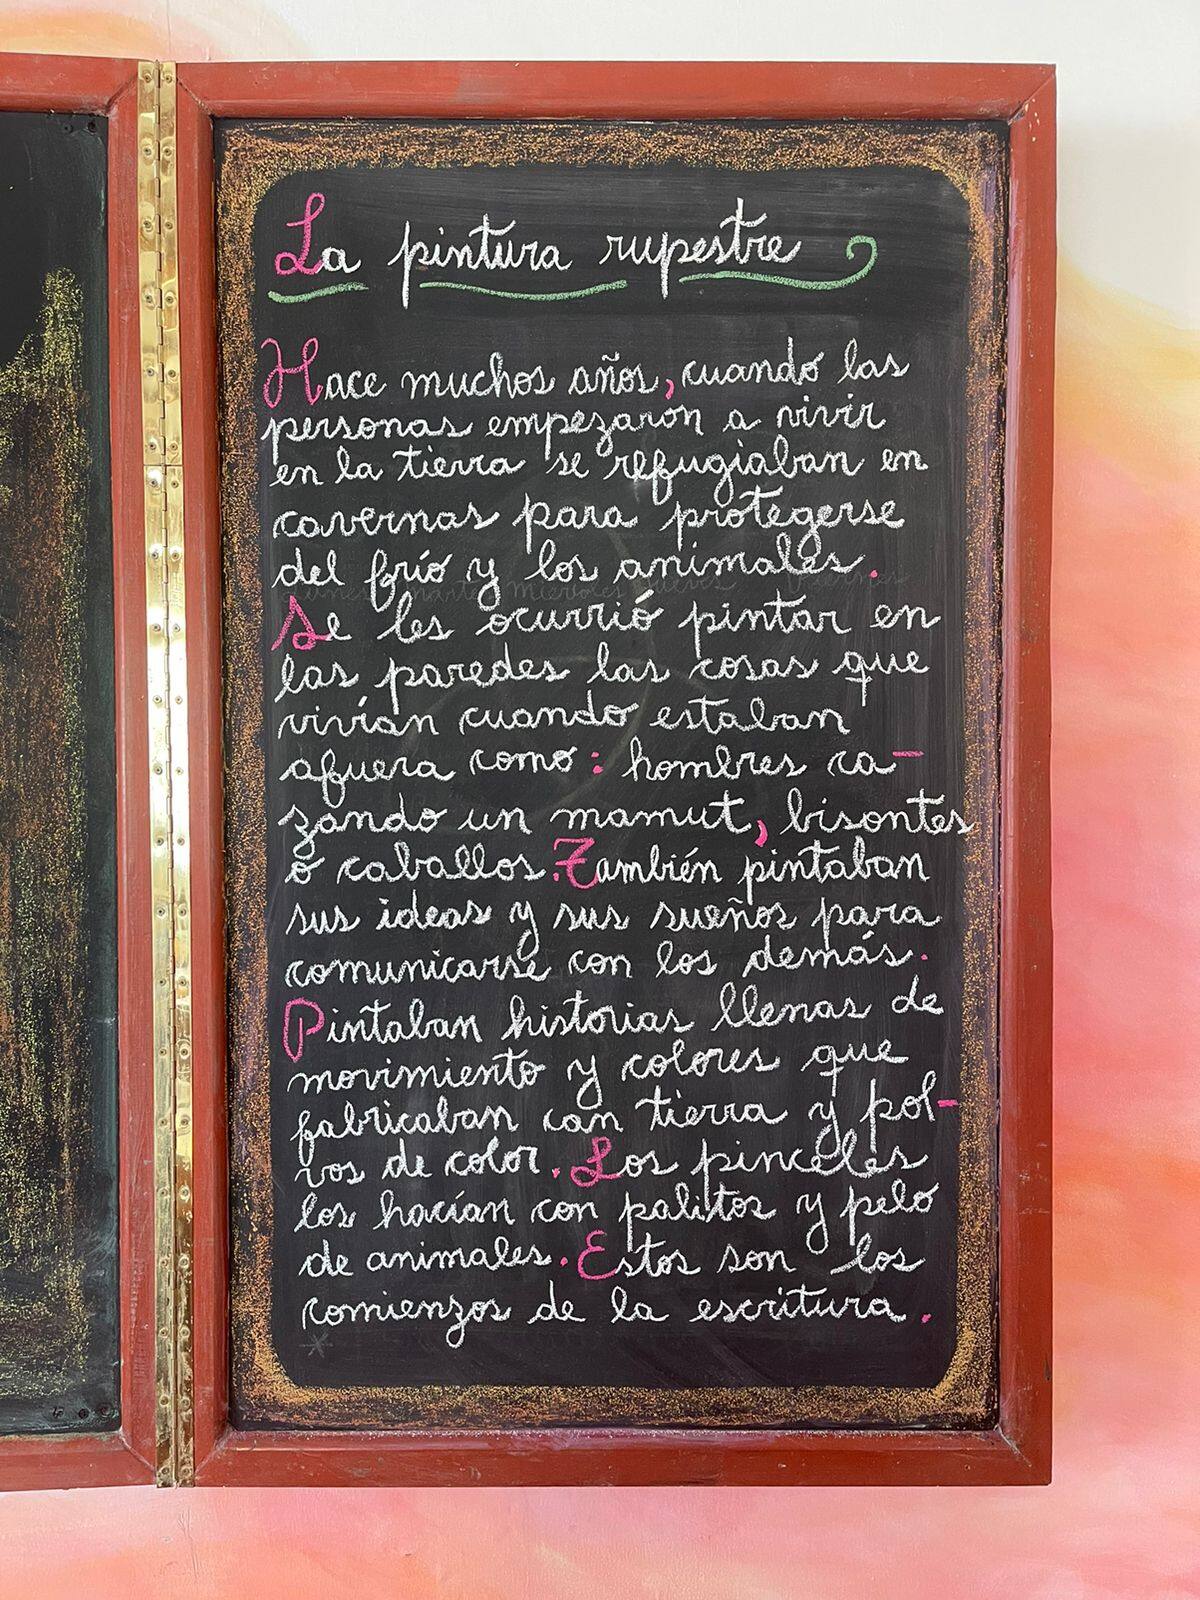 La pintura rupestre
Hace muchos años, cuando las
personas empezaron a vivir
en la tierra se refugiaban en
cavernas para protegerse
del frío y los animales.
Se les ocurrió pintar en
las paredes las cosas que
vivían cuando estaban
afuera como: hombres ca-
zando un mamut, bisontes
o caballos. También pintaban
sus ideas y sus sueños para
comunicarse con los demás.
Pintaban historias llenas de
movimiento y colores que
fabricaban con tierra y pol-
vos de color. Los pinceles
los hacían con palitos y pelo
de animales. Estos son los
comienzos de la escritura.